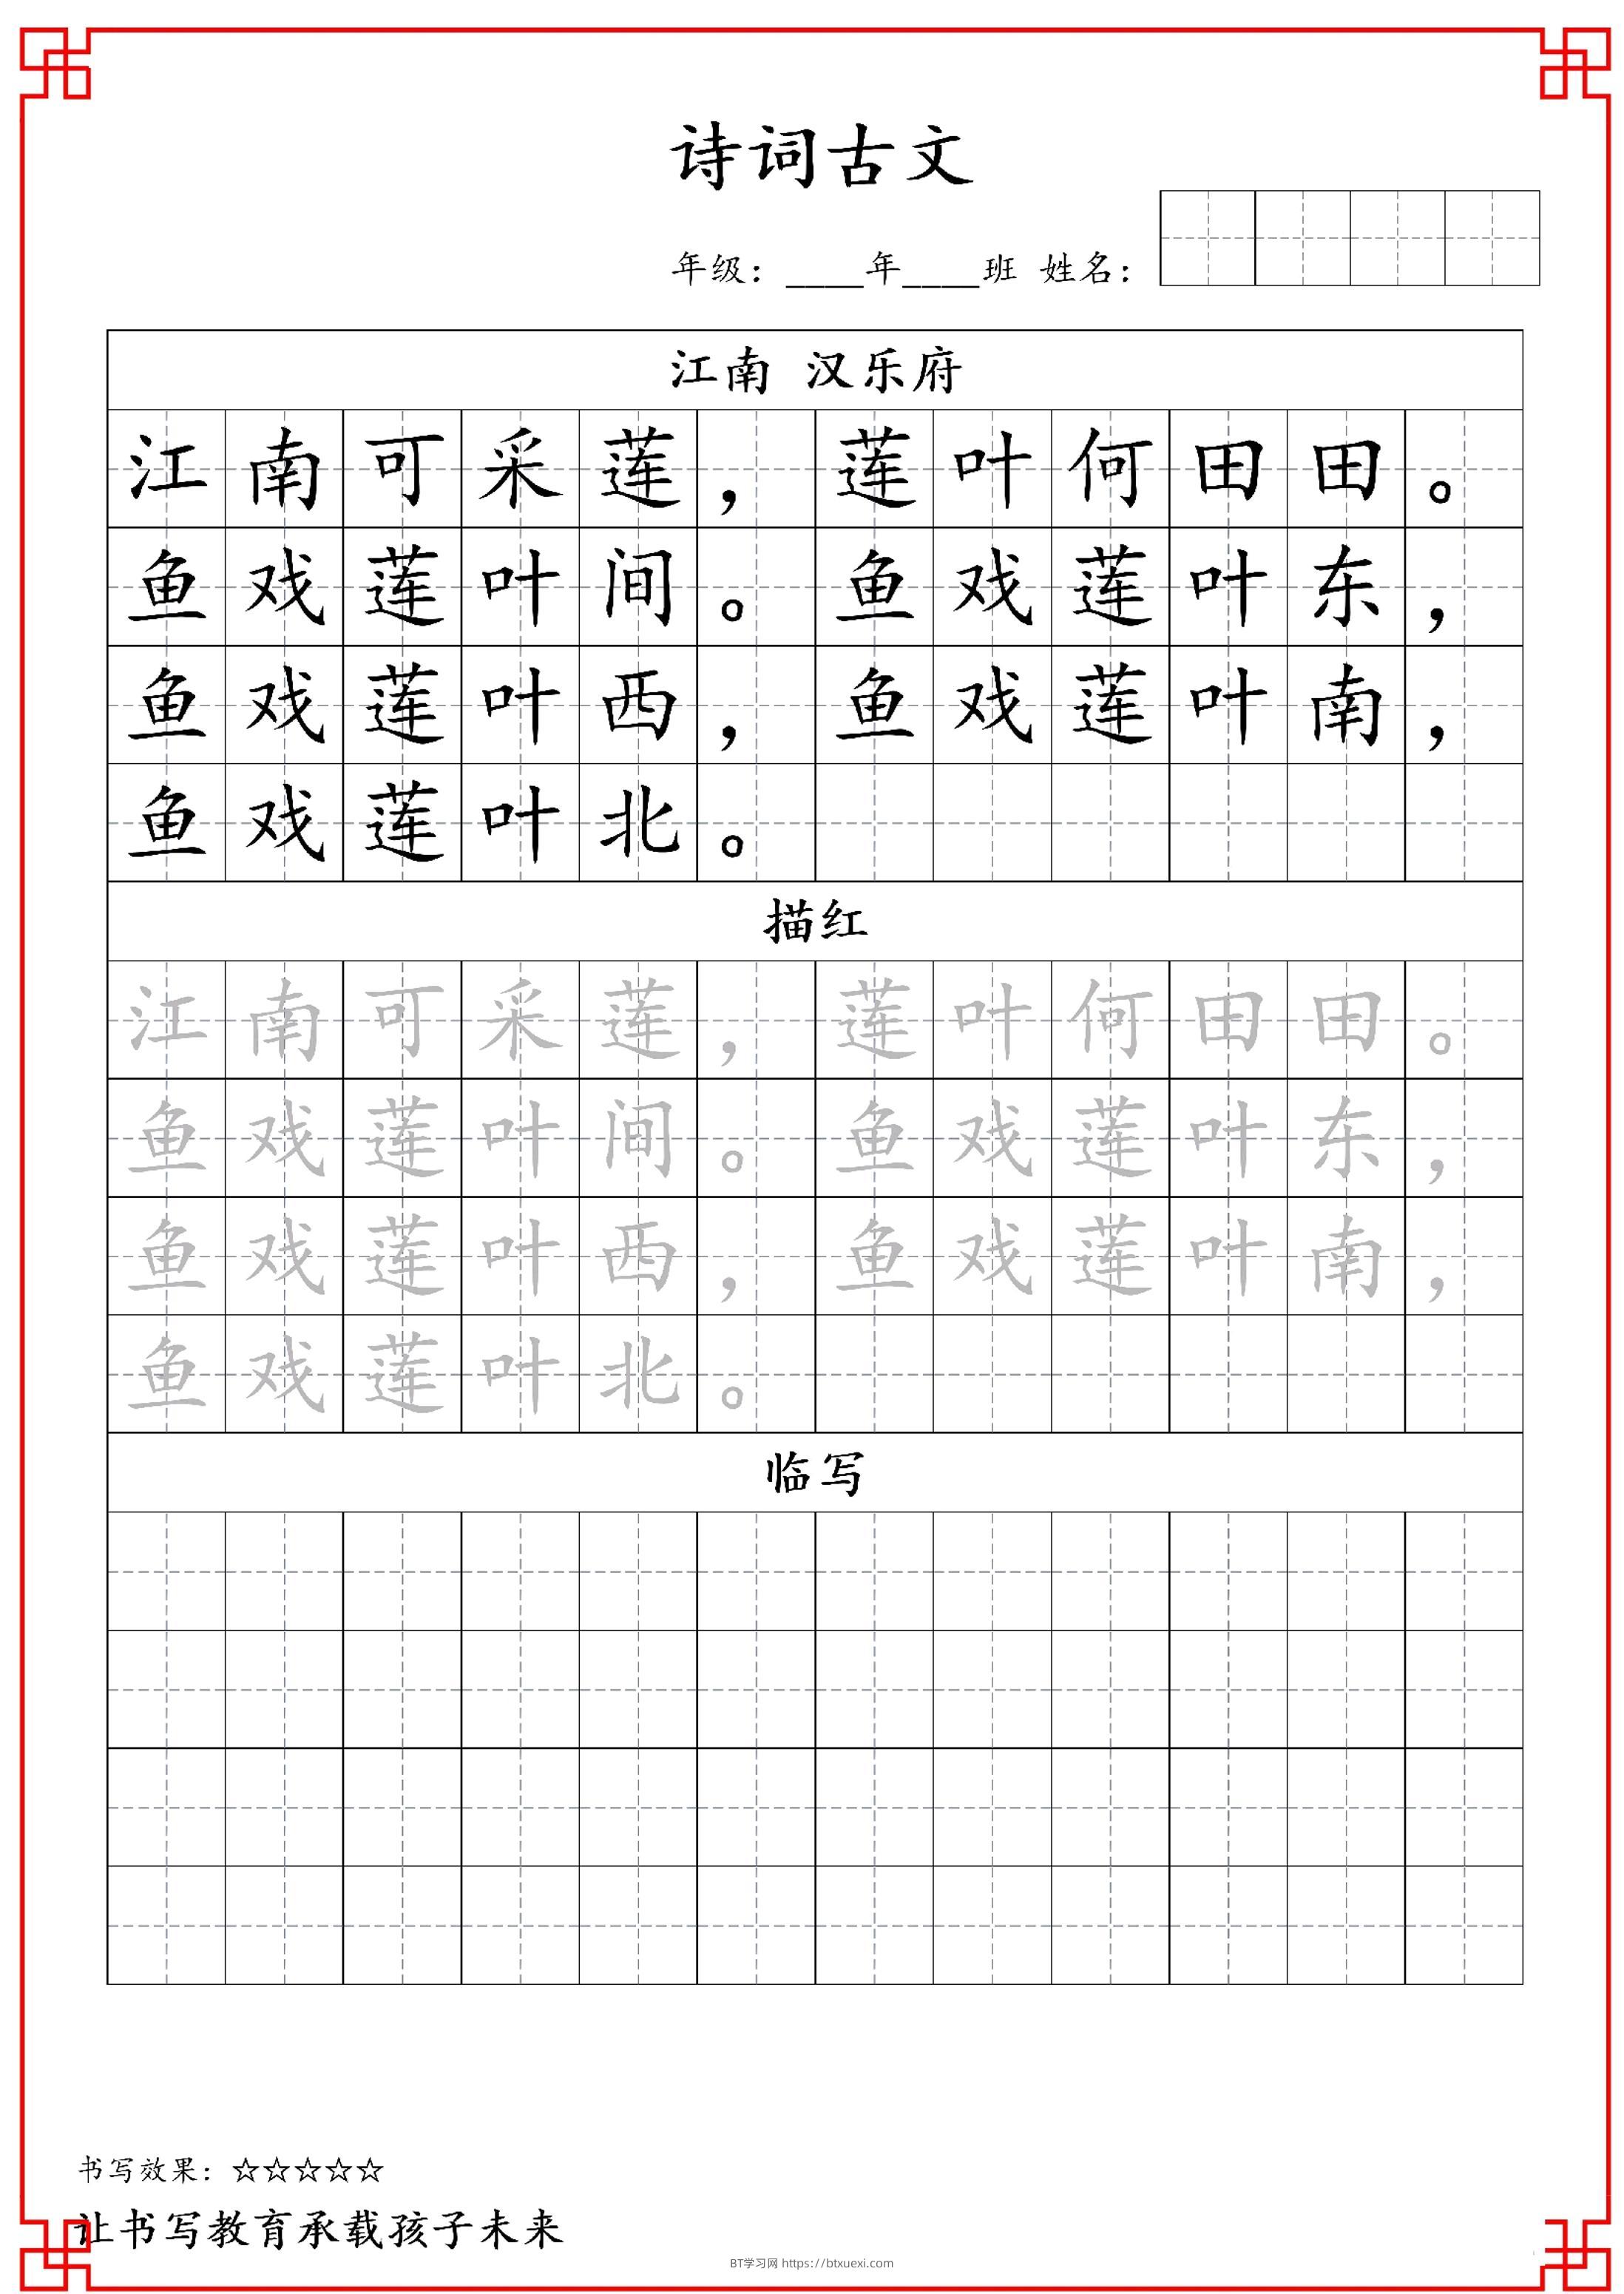 诗词古文
年级：____年____班 姓名：
江南 汉乐府
江南可采莲，莲叶何田田。
鱼戏莲叶间。鱼戏莲叶东，
鱼戏莲叶西，鱼戏莲叶南，
鱼戏莲叶北。
描红
江南可采莲，莲叶何田田。
鱼戏莲叶间。鱼戏莲叶东，
鱼戏莲叶西，鱼戏莲叶南，
鱼戏莲叶北。
临写
书写效果：☆☆☆☆☆
让书写教育承载孩子未来
BT学习网 https://btxuexi.com